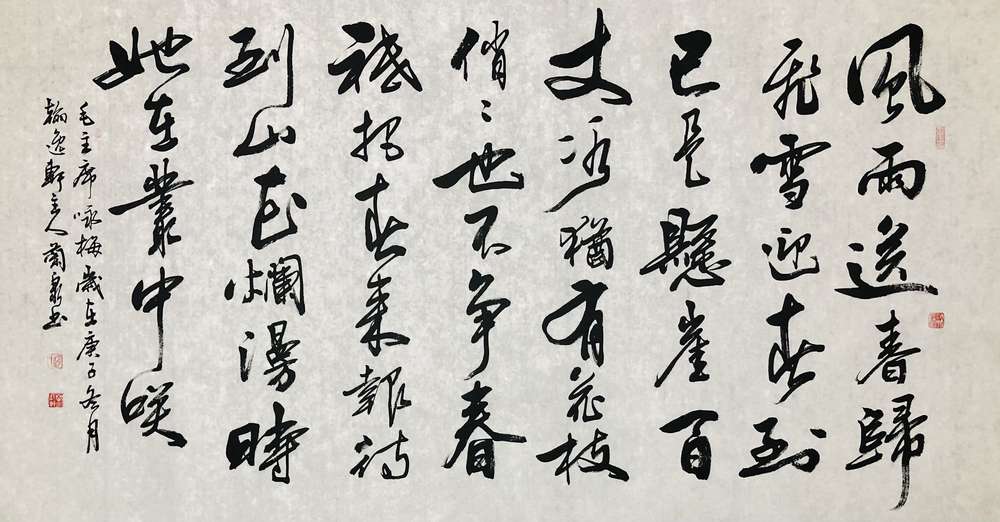 風雨送春歸
飛雪迎春到
已是懸崖百
丈冰猶有花枝
俏〻也不争春
祗把春来報待
到山花爛漫時
她在叢中咲
毛主席咏梅歲在庚子冬月
翰逸軒主人蘭泉书